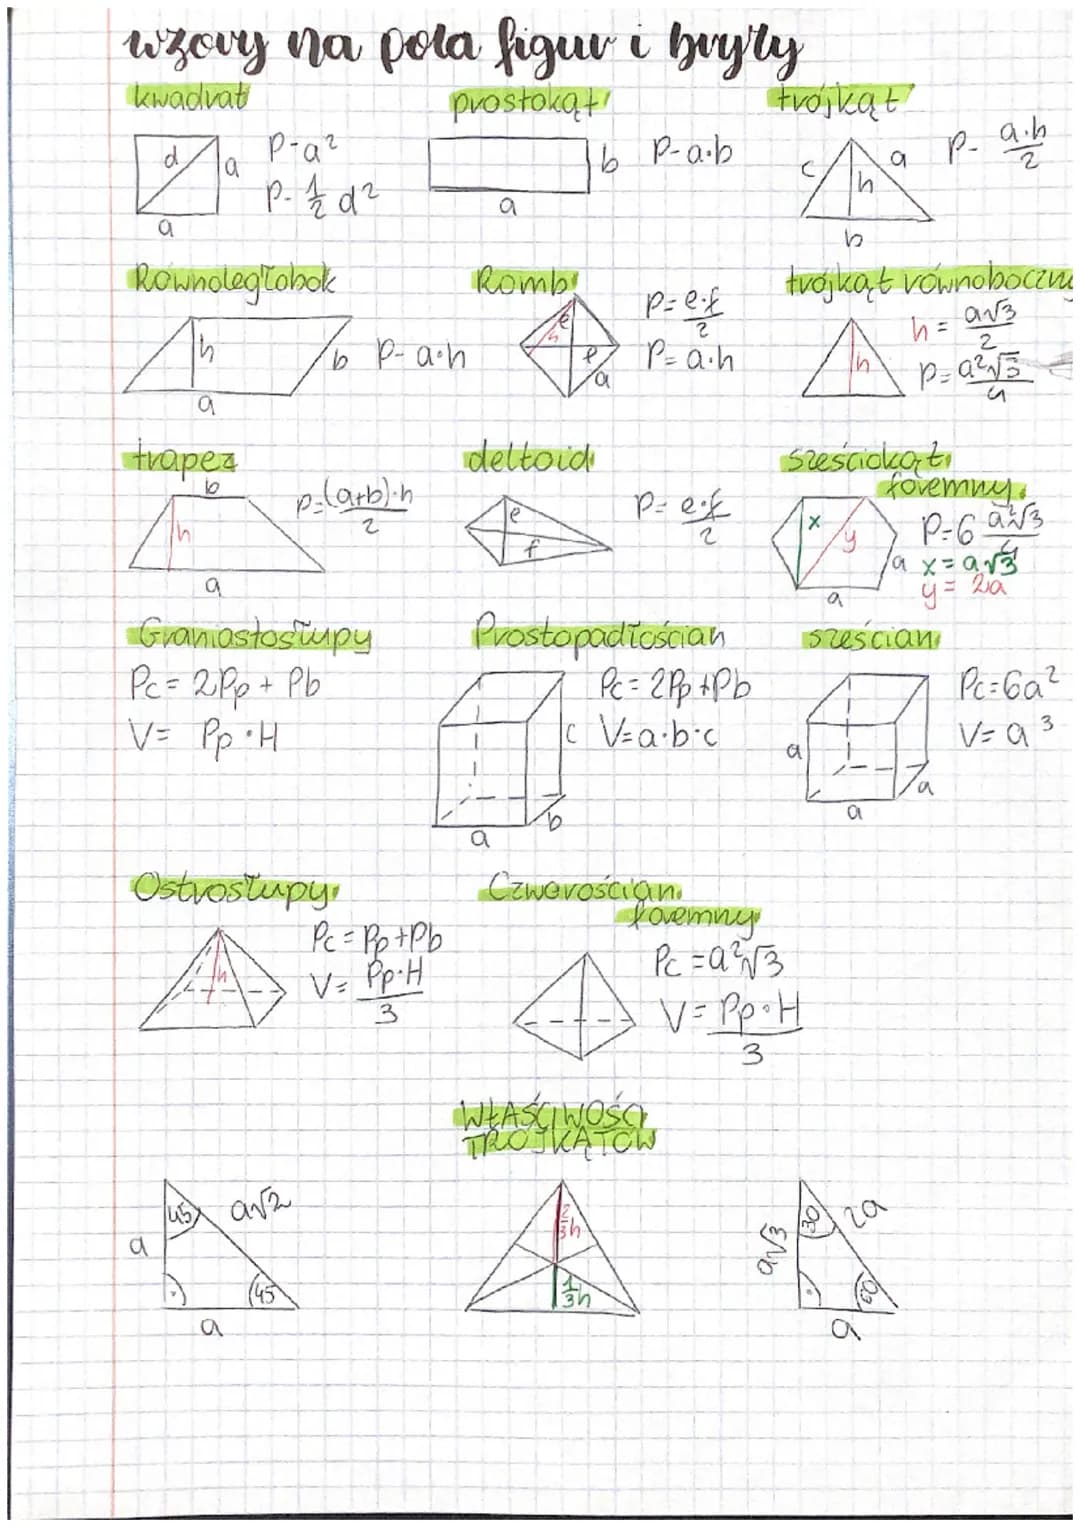 wzory na pola figur i bryły
kwadrat
d
a
a
P-a²
P-½ d²
prostokąt
b
a
P-a·b
trójkąt
c
a
h
b
P- a·h/2
Równoległobok
h
b
a
P-a·h
Romb
e
h
e
a
P= e·f/2
P= a·h
trójkąt równoboczny
h
h= a√3/2
P= a²√3/4
trapez
b
h
a
P=(a+b)·h/2
deltoid
e
f
P= e·f/2
sześciokąt
foremny
x
y
a
a
P=6 a²√3/4
x= a√3
y= 2a
Graniastosłupy
Pc= 2Pp + Pb
V= Pp·H
Prostopadłościan
c
b
a
Pc= 2Pp+Pb
V=a·b·c
sześcian
a
a
a
Pc=6a²
V= a³
Ostrosłupy
h
Pc=Pp+Pb
V= Pp·H/3
Czworościan
foremny
Pc=a²√3
V= Pp·H/3
WŁAŚCIWOŚCI
TRÓJKĄTÓW
45
a√2
a
45
a
2/3h
1/3h
30
2a
a√3
60
a